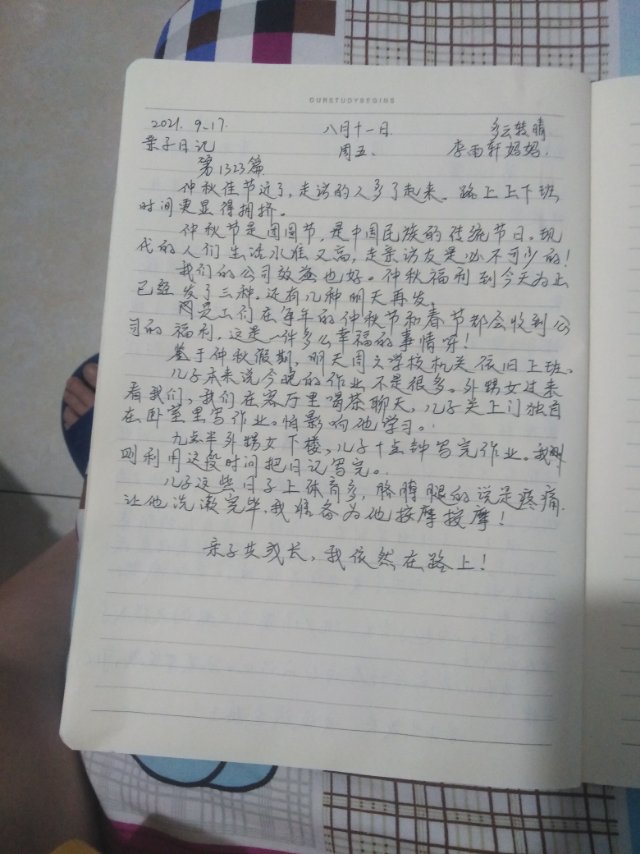 OURSTUDYBEGINS
2021. 9.17. 八月十一日 多云转晴
亲子日记 周五. 李雨轩妈妈.
第1323篇
仲秋佳节近了，走访的人多了起来。路上上下班
时间更显得拥挤。
仲秋节是团圆节，是中国民族的传统节日。现
代的人们生活水准又高，走亲访友是必不可少的！
我们的公司效益也好。仲秋福利到今天为止
已经发了三种。还有几种明天再发。
们在每年的仲秋节和春节都会收到公
司的福利，这是一件多么幸福的事情呀！
鉴于仲秋假期，明天周六学校机关依旧上班.
儿子未来说今晚的作业不是很多。外甥女过来
看我们，我们在客厅里喝茶聊天，儿子关上门独自
在卧室里写作业。怕影响他学习。
九点半外甥女下楼，儿子十点钟写完作业。我
则利用这段时间把日记写完。
儿子这些日子上体育多，胳膊腿的说是疼痛.
让他洗漱完毕，我准备为他按摩按摩！
亲子共成长，我依然在路上！